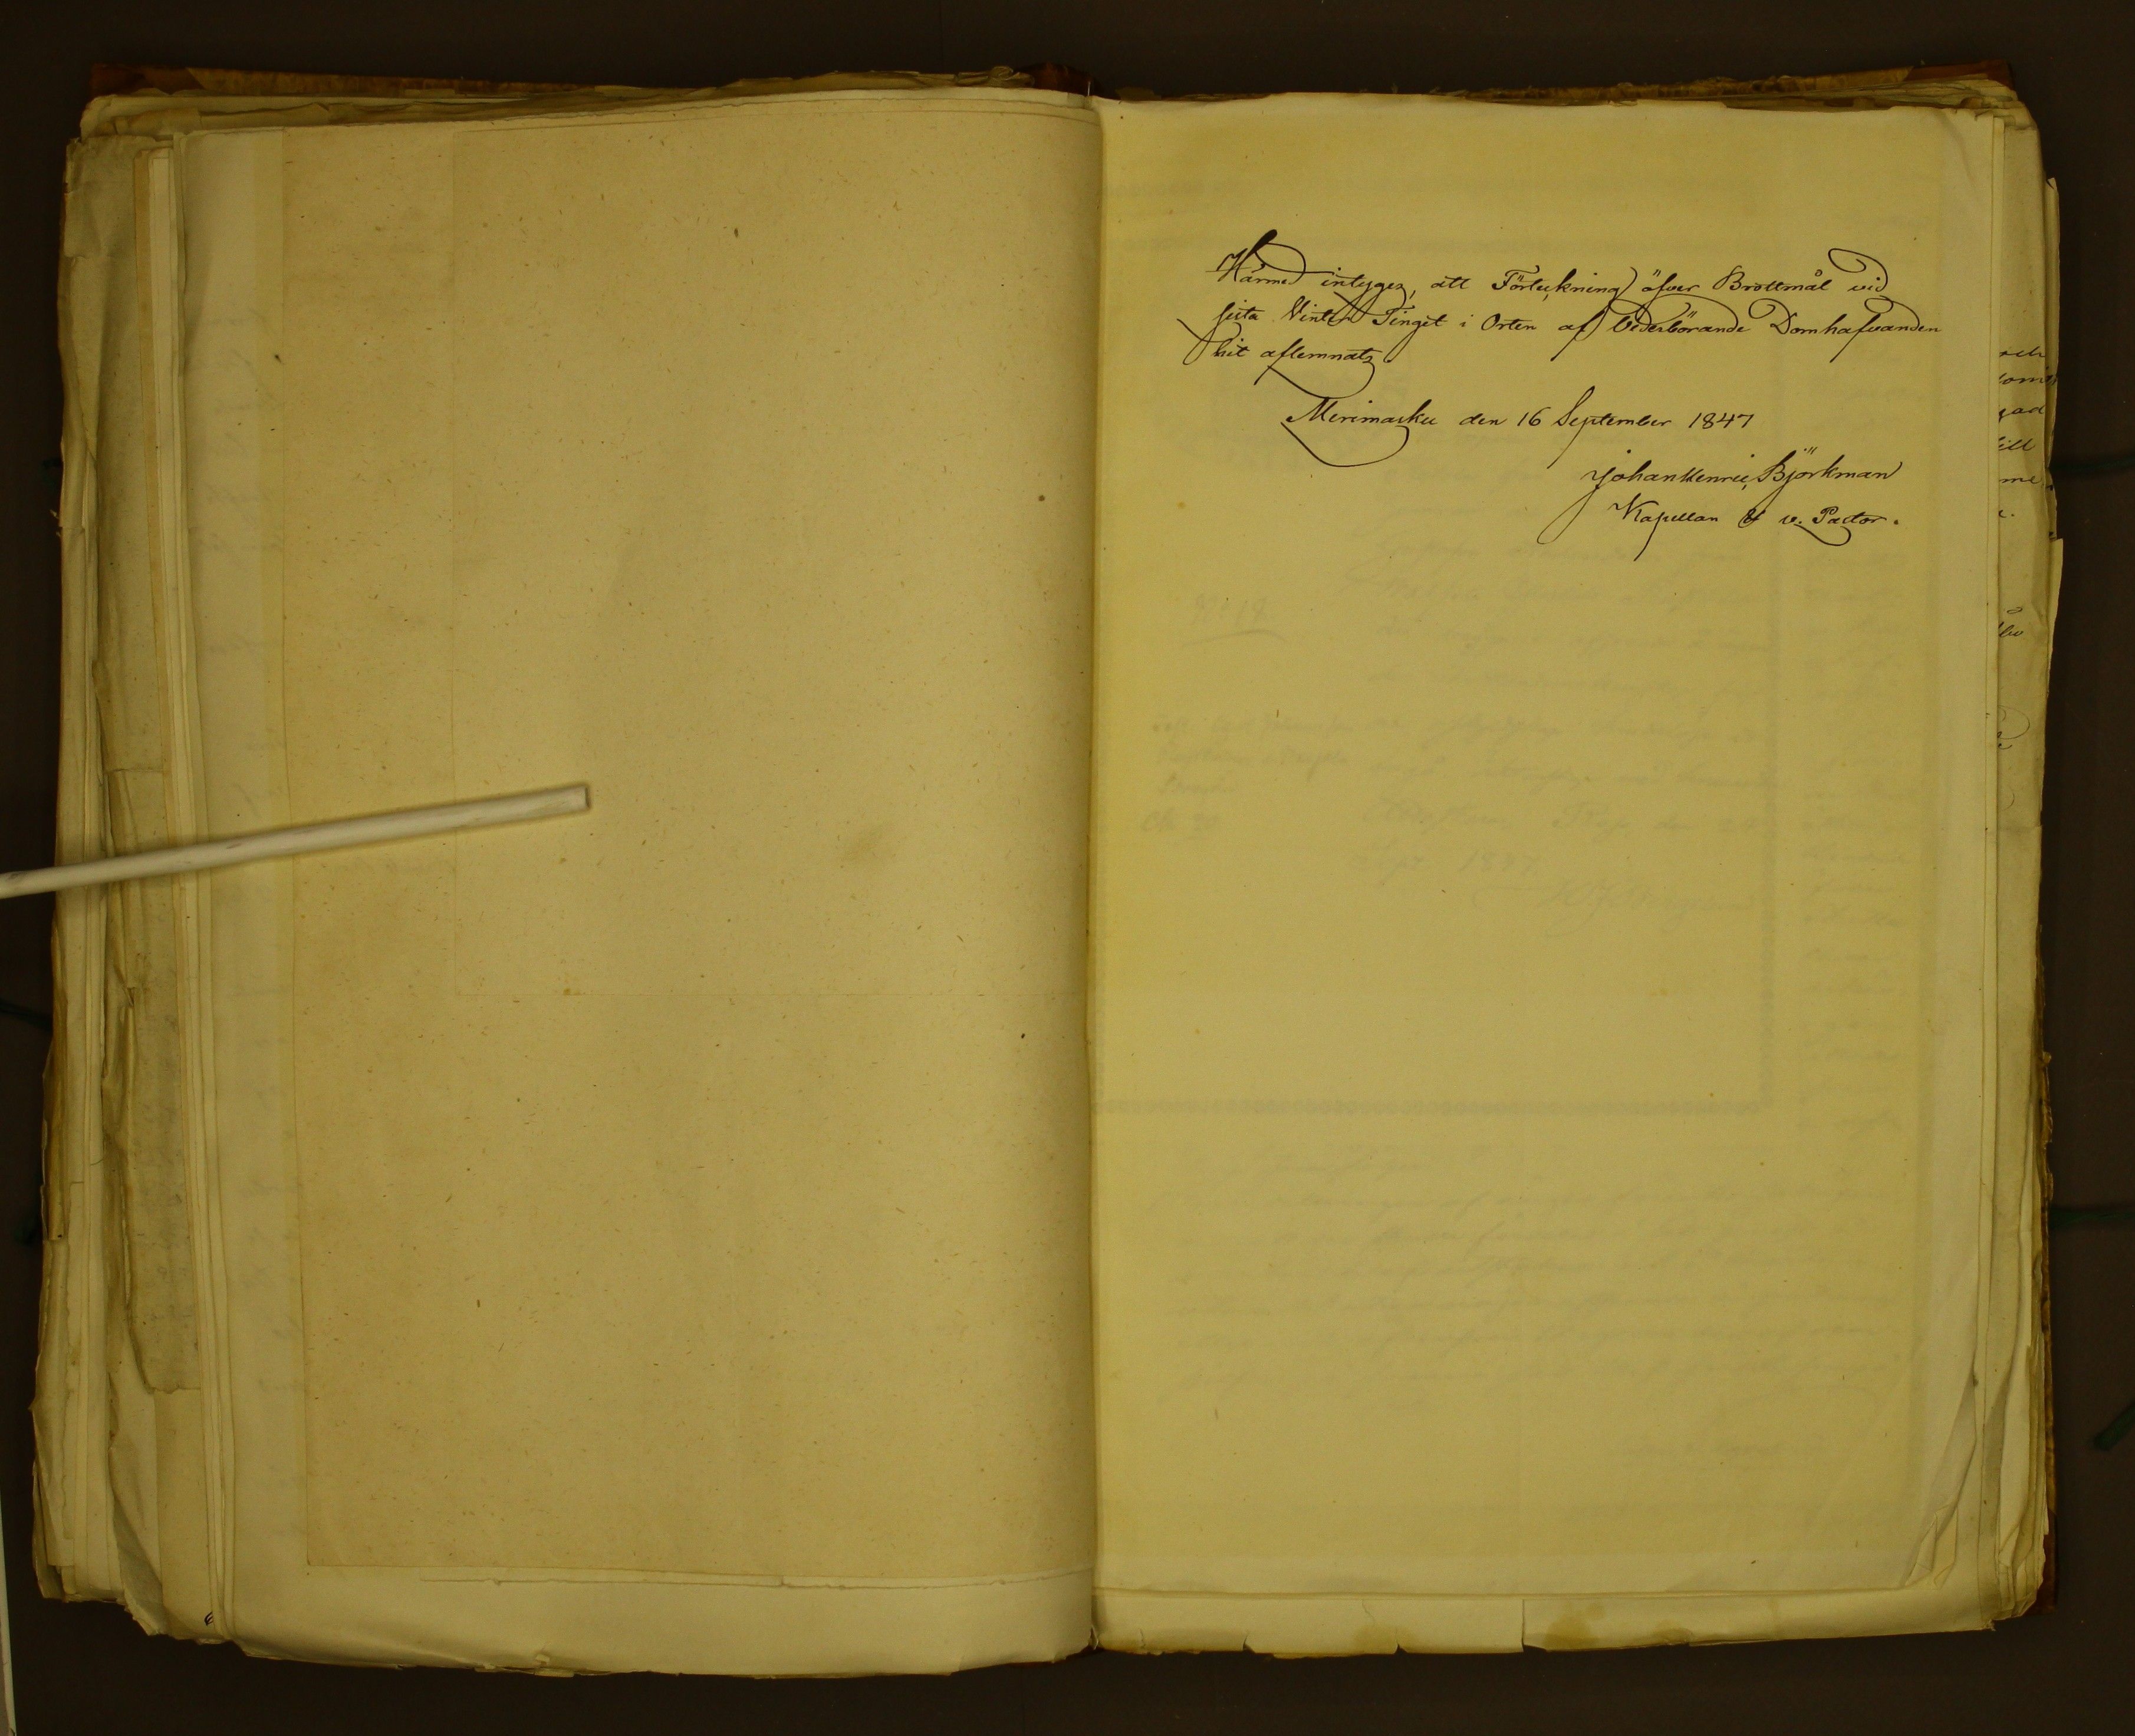 Härmed intyges, att Förteckning öfver Brottmål vid
sista Vinter Tinget i Orten af Vederbörande Domhafvanden
hit aflemnats.
Merimasku den 16 September 1847
Johan Henric Björkman
Kapellan & v. Pastor.